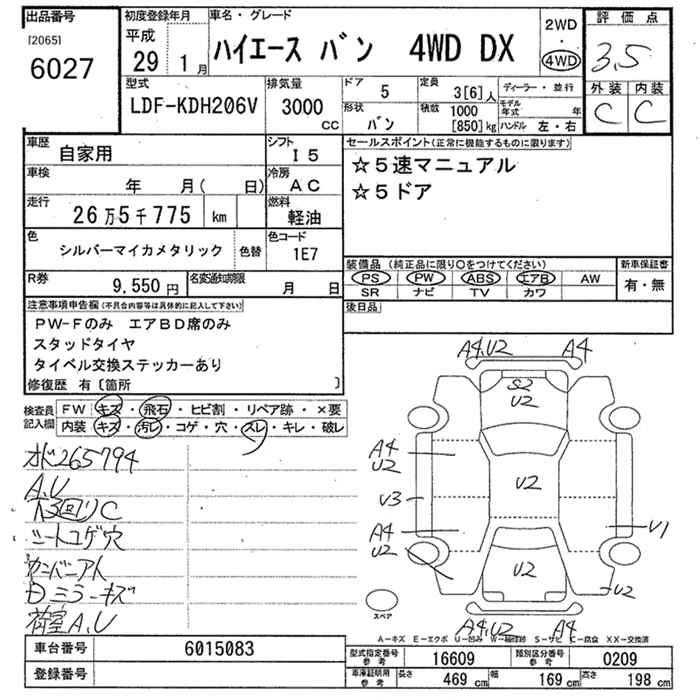 出品番号
[2065]
6027
初度登録年月
平成
29 1月
車名・グレード
ハイエース バン 4WD DX
2WD
4WD
評価点
3.5
外装 内装
C C
型式
LDF-KDH206V
排気量
3000
CC
ドア
5
定員
3[6]人
形状
バン
積載
1000
[850]kg
ディーラー・並行
モデル年式 年
ハンドル 左・右
車歴
自家用
シフト
I5
車検
年 月( 日)
冷房
AC
走行
26万5千775 km
燃料
軽油
色
シルバーマイカメタリック
色替
色コード
1E7
R券
9,550円
名変通知期限
月 日
セールスポイント(正常に機能するものに限ります)
☆5速マニュアル
☆5ドア
装備品 (純正品に限り○をつけてください)
PS PW ABS エアB AW
SR ナビ TV カワ
新車保証書
有・無
後日品
注意事項申告欄(不具合内容等は具体的に記入して下さい)
PW-Fのみ エアBD席のみ
スタッドタイヤ
タイベル交換ステッカーあり
修復歴 有〔箇所 〕
検査員
記入欄
FW キズ・飛石・ヒビ割・リペア跡・×要
内装 キズ・汚レ・コゲ・穴・スレ・キレ・破レ
265794
A.U
シートコゲ穴
ミラーキズ
荷室A.U
A4.U2 A4
S2
U2
A4
U2
U2
U3
A4
U2
V1
U2
U2
A4.U2 A4
スペア
A-キズ E-エクボ U-凹み W-補修跡 S-サビ C-腐食 XX-交換済
車台番号
6015083
登録番号
型式指定番号
参考
16609
類別区分番号
参考
0209
車庫証明用
参考
長さ
469 cm
幅
169 cm
高さ
198 cm